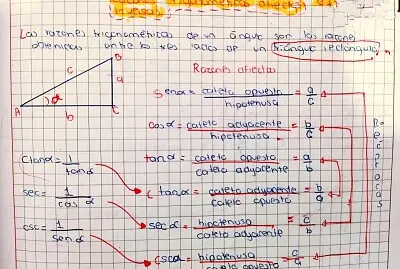 trigonométricas directas e
inversas
Las razones trigonométricas de un ángulo son las razones
obtenidas entre los tres lados de un triángulo rectángulo
Razones directas
B
c
a
α
A
b
C
Senα = cateto opuesto / hipotenusa = a/c
cosα = cateto adyacente / hipotenusa = b/c
tanα = cateto opuesto / cateto adyacente = a/b
Ctanα = 1/tanα
Ctanα = cateto adyacente / cateto opuesto = b/a
sec = 1/cos α
secα = hipotenusa / cateto adyacente = c/b
csc = 1/sen α
cscα = hipotenusa / cateto opuesto = c/a
Recíprocas